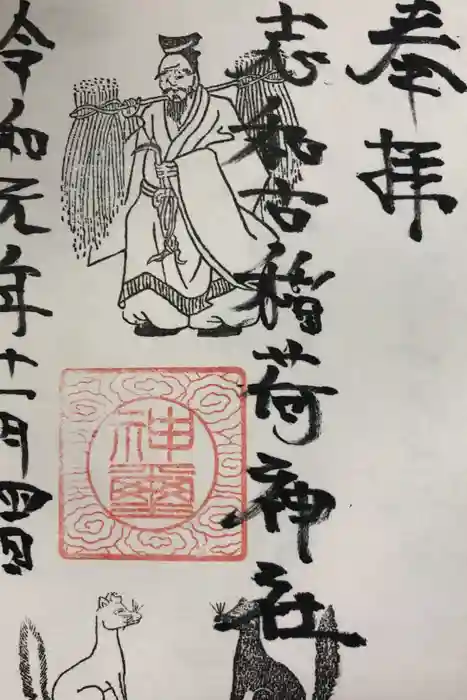 奉拝
志和古稲荷神社
令和元年十一月四日
神璽